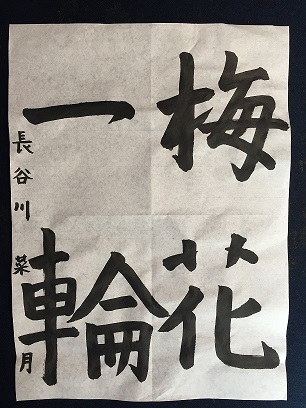 梅花
一輪
長谷川 菜月